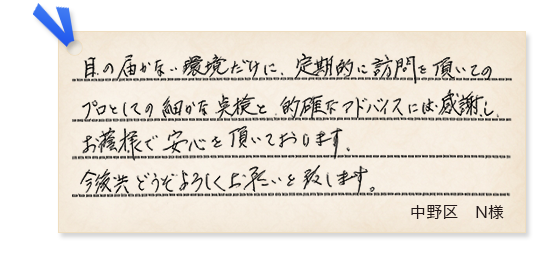 目の届かない環境だけに、定期的に訪問を頂いての
プロとしての細かな点検と、的確なアドバイスには感謝し、
お蔭様で安心を頂いております。
今後共どうぞよろしくお願いを致します。
中野区　N様